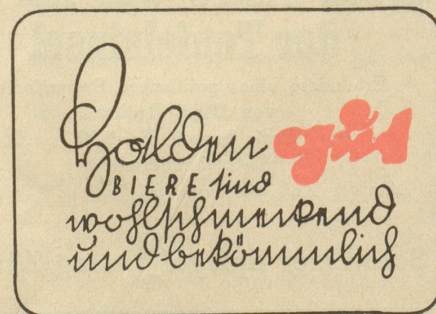 Haldengüt
BIERE sind
wohlschmeckend
und bekömmlich